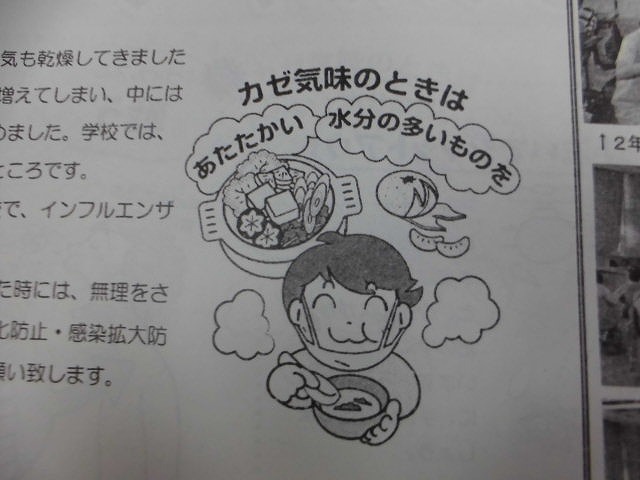 気も乾燥してきました
増えてしまい、中には
めました。学校では、
ところです。
で、インフルエンザ
た時には、無理をさ
化防止・感染拡大防
願い致します。
カゼ気味のときは
あたたかい
水分の多いものを
↑2年